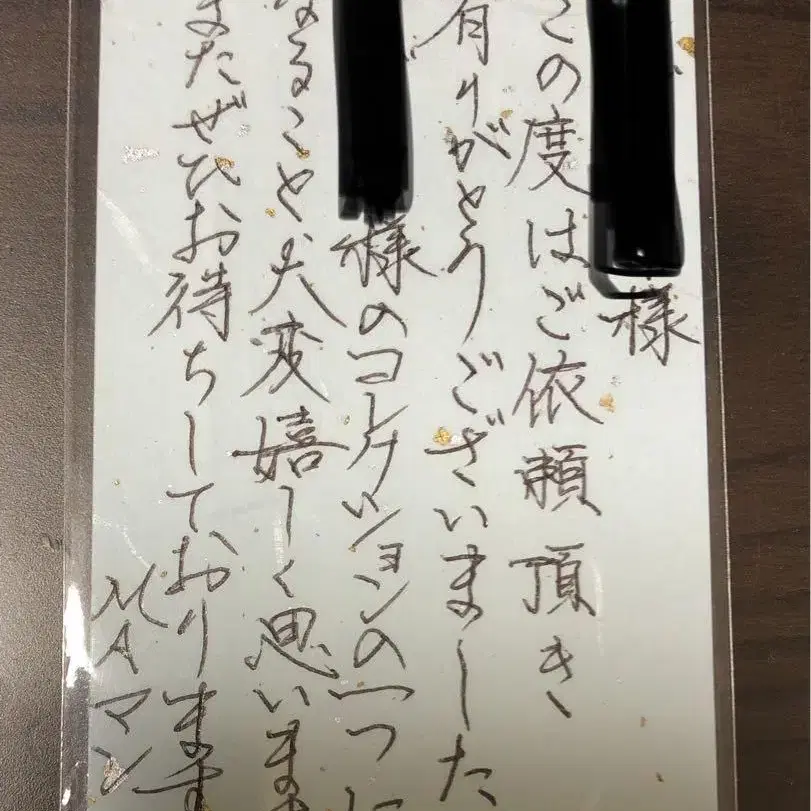 様
この度はご依頼頂き
有りがとうございました
様のコレクションの一つに
なること大変嬉しく思いま
またぜひお待ちしております
MAマン